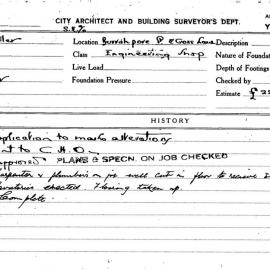 CITY ARCHITECT AND BUILDING SURVEYOR'S DEPT.
Location P & Goss Lane Description
Class Engineering Shop Nature of Foundat
Live Load Depth of Footings
Foundation Pressure Checked by
Estimate £
HISTORY
pplication to make alteration
nt to C.H.O.
approved PLANS & SPECN. ON JOB CHECKED
arpenter & plumbers on job well cut in floor to receive
erected. Flooring taken up.
Complete.